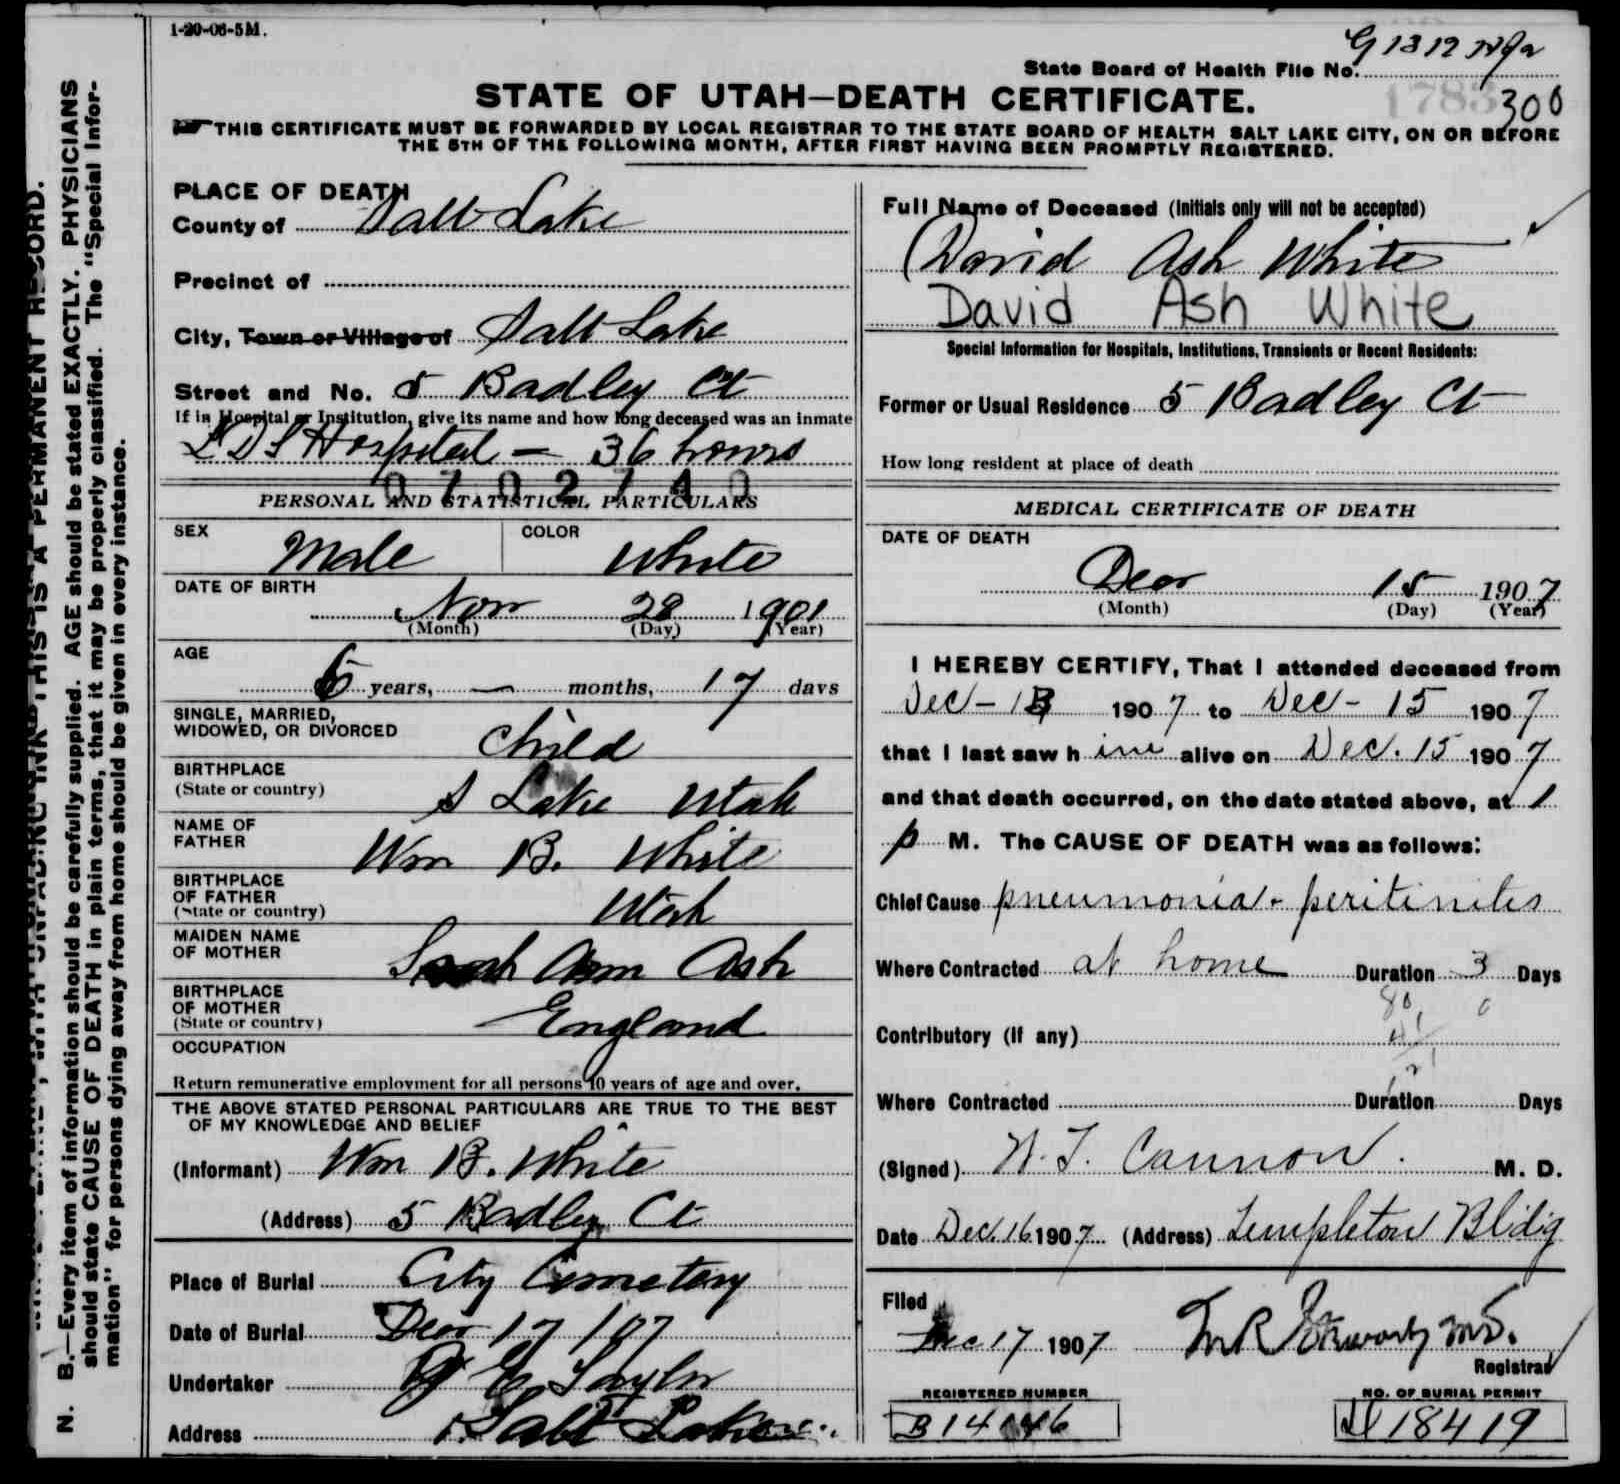 1-20-06-5M.
State Board of Health File No.
300
STATE OF UTAH—DEATH CERTIFICATE.
THIS CERTIFICATE MUST BE FORWARDED BY LOCAL REGISTRAR TO THE STATE BOARD OF HEALTH SALT LAKE CITY, ON OR BEFORE
THE 5TH OF THE FOLLOWING MONTH, AFTER FIRST HAVING BEEN PROMPTLY REGISTERED.
N. B.—Every item of information should be carefully supplied. AGE should be stated EXACTLY. PHYSICIANS
should state CAUSE OF DEATH in plain terms, that it may be properly classified. The "Special Infor-
mation" for persons dying away from home should be given in every instance.
THIS IS A PERMANENT RECORD.
PLACE OF DEATH
County of Salt Lake
Precinct of
City, Town or Village of Salt Lake
Street and No. 5 Badley Ct
If in Hospital or Institution, give its name and how long deceased was an inmate
L D S Hospital — 36 hours
PERSONAL AND STATISTICAL PARTICULARS
SEX Male COLOR White
DATE OF BIRTH
Nov 28 1901
(Month) (Day) (Year)
AGE
6 years, — months, 17 days
SINGLE, MARRIED,
WIDOWED, OR DIVORCED Child
BIRTHPLACE
(State or country) S Lake Utah
NAME OF
FATHER Wm B. White
BIRTHPLACE
OF FATHER
(State or country) Utah
MAIDEN NAME
OF MOTHER Sarah Ann Ash
BIRTHPLACE
OF MOTHER
(State or country) England
OCCUPATION
Return remunerative employment for all persons 10 years of age and over.
THE ABOVE STATED PERSONAL PARTICULARS ARE TRUE TO THE BEST
OF MY KNOWLEDGE AND BELIEF
(Informant) Wm B. White
(Address) 5 Badley Ct
Place of Burial City Cemetery
Date of Burial Dec 17 / 07
Undertaker E Taylor
Address Salt Lake
Full Name of Deceased (Initials only will not be accepted)
David Ash White
David Ash White
Special Information for Hospitals, Institutions, Transients or Recent Residents:
Former or Usual Residence 5 Badley Ct
How long resident at place of death
MEDICAL CERTIFICATE OF DEATH
DATE OF DEATH
Dec 15 1907
(Month) (Day) (Year)
I HEREBY CERTIFY, That I attended deceased from
Dec - 13 1907 to Dec - 15 1907
that I last saw him alive on Dec. 15 1907
and that death occurred, on the date stated above, at 1
p M. The CAUSE OF DEATH was as follows:
Chief Cause pneumonia - peritinites
Where Contracted at home Duration 3 Days
Contributory (if any)
Where Contracted Duration Days
(Signed) W. T. Cannon. M. D.
Date Dec. 16 1907 (Address) Templeton Bldig
Filed
Dec 17 1907
Registrar
REGISTERED NUMBER
NO. OF BURIAL PERMIT
18419